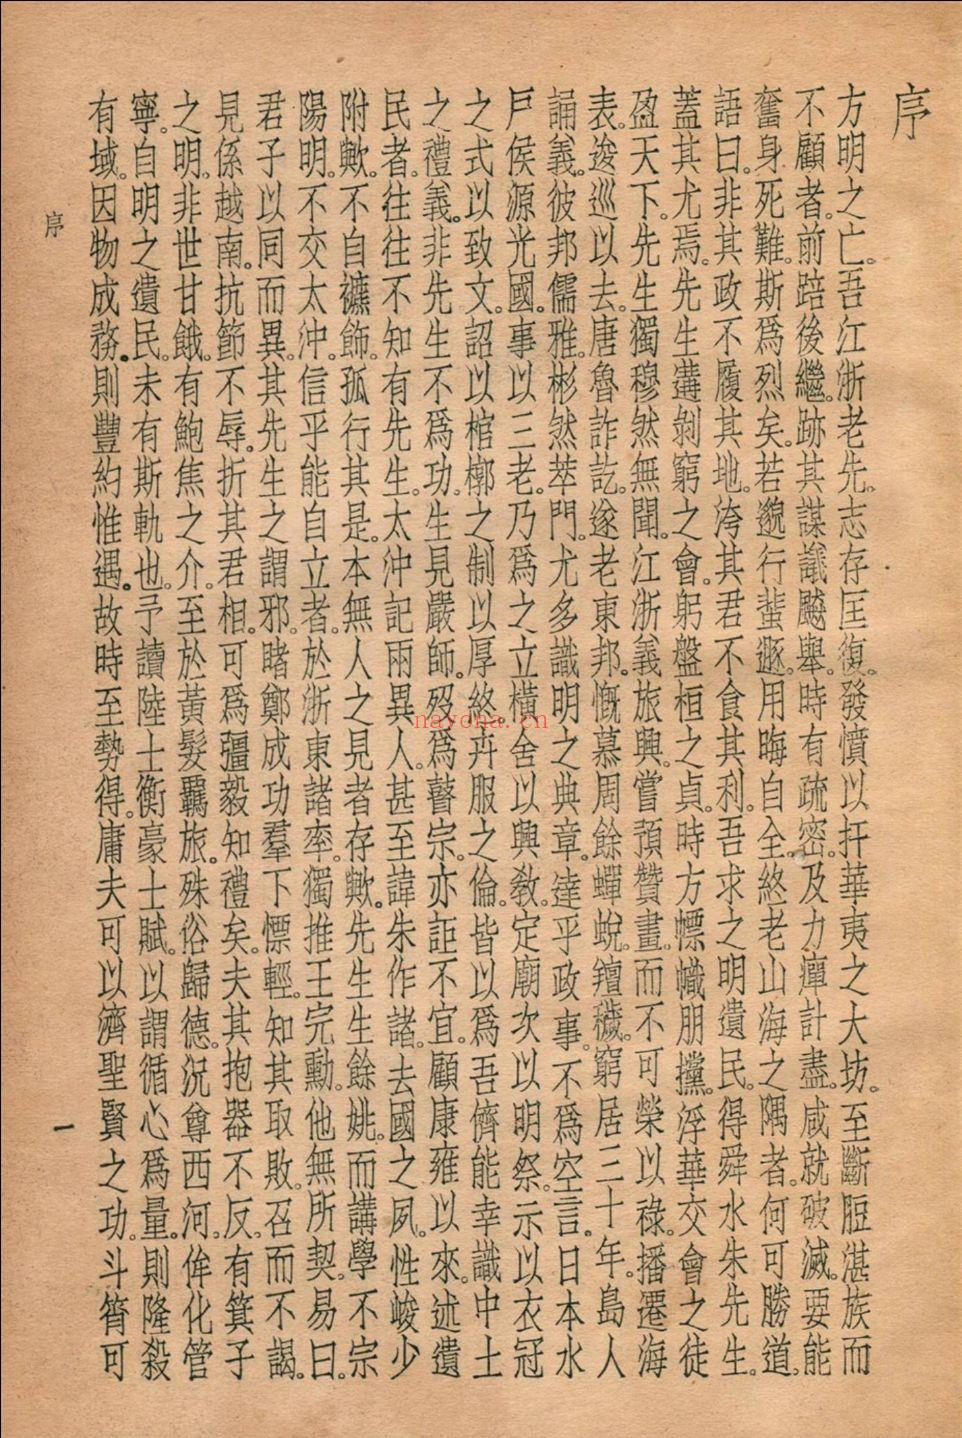 序
方明之亡。吾江浙老先。志存匡復。發憤以扞華夷之大坊。至斷脰湛族而
不顧者。前踣後繼。跡其謀議飇舉。時有疏密。及力癉計盡。咸就破滅。要能
奮身死難。斯爲烈矣。若邈行蜚遯。用晦自全。終老山海之隅者。何可勝道。
語曰。非其政不履其地。洿其君不食其利。吾求之明遺民。得舜水朱先生。
蓋其尤焉。先生遘剝窮之會。躬盤桓之貞。時方幖幟朋攩。浮華交會之徒
盈天下。先生獨穆然無聞。江浙義旅興。嘗預贊畫。而不可榮以祿。播遷海
表。逡巡以去。唐魯詐訖。遂老東邦。慨慕周餘。蟬蛻羶穢。窮居三十年。島人
誦義。彼邦儒雅。彬然萃門。尤多識明之典章。達乎政事。不爲空言。日本水
戶侯源光國。事以三老。乃爲之立橫舍以興敎。定廟次以明祭。示以衣冠
之式以致文。詔以棺槨之制以厚終。卉服之倫。皆以爲吾儕能幸識中土
之禮義。非先生不爲功。生見嚴師。歿爲瞽宗。亦詎不宜。顧康雍以來。述遺
民者。往往不知有先生。太沖記兩異人。甚至諱朱作諸。去國之夙。性峻少
附歟。不自襮飾。孤行其是。本無人之見者存歟。先生生餘姚。而講學不宗
陽明。不交太沖。信乎能自立者。於浙東諸率。獨推王完勳。他無所契。易曰。
君子以同而異。其先生之謂邪。睹鄭成功羣下慓輕。知其取敗。召而不謁。
見係越南。抗節不辱。折其君相。可爲彊毅知禮矣。夫其抱器不反。有箕子
之明。非世甘餓。有鮑焦之介。至於黃髮羈旅。殊俗歸德。況尊西河。侔化管
寧。自明之遺民。未有斯軌也。予讀陸士衡豪士賦。以謂循心爲量。則隆殺
有域。因物成務。則豐約惟遇。故時至勢得。庸夫可以濟聖賢之功。斗筲可
序
一
nayona.cn